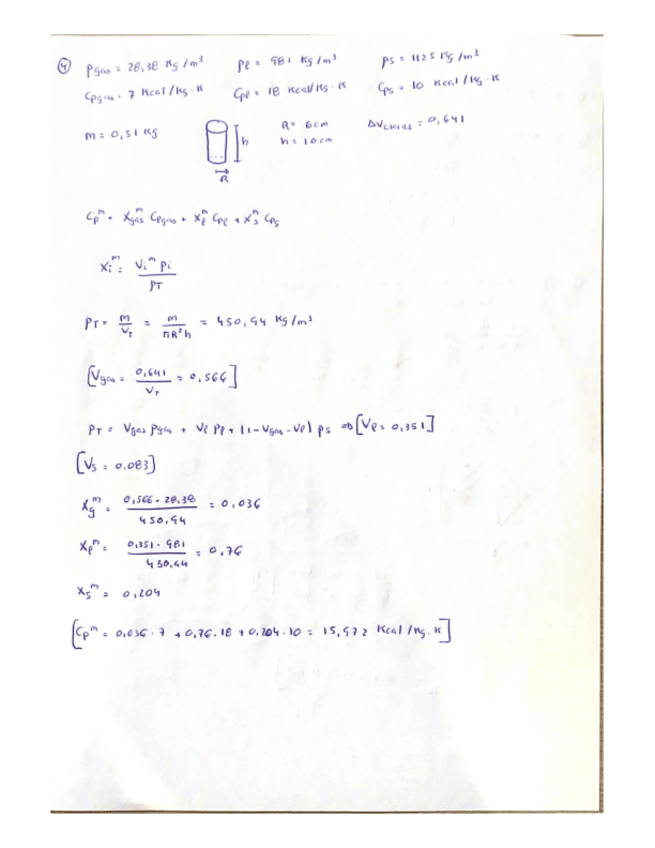 ④ ρgas = 28,38 Kg/m³ ρl = 981 Kg/m³ ρs = 1125 Kg/m³
Cpgas = 7 Kcal/Kg·K Cpl = 18 Kcal/Kg·K Cps = 10 Kcal/Kg·K
m = 0,51 Kg h R R = 6cm h = 10cm ΔV = 0,641
Cpᵐ = Xgasᵐ Cpgas + Xlᵐ Cpl + Xsᵐ Cps
Xiᵐ = Viᵐ ρi / ρT
ρT = m/VT = m/πR²h = 450,94 Kg/m³
[Vgas = 0,641/VT = 0,566]
ρT = Vgas ρgas + Vl ρl + (1-Vgas-Vl) ρs ⇒ [Vl = 0,351]
[Vs = 0.083]
Xgᵐ = 0,566·28,38 / 450,94 = 0,036
Xlᵐ = 0,351·981 / 450,94 = 0,76
Xsᵐ = 0,204
[Cpᵐ = 0,036·7 + 0,76·18 + 0.204·10 = 15,972 Kcal/Kg·K]